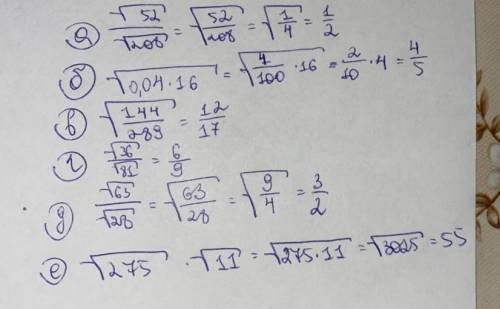 а) √52/√208 = √(52/208) = √(1/4) = 1/2
б) √(0,04·16) = √(4/100 ·16) = 2/10 ·4 = 4/5
в) √(144/289) = 12/17
г) √36/√81 = 6/9
д) √63/√28 = √(63/28) = √(9/4) = 3/2
е) √275 ·√11 = √(275·11) = √3025 = 55